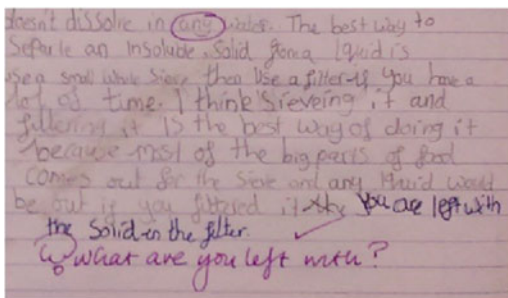 doesn't dissolve in any water. The best way to
Separte an insoluble Solid from a lquid is
use a small whole Sieve then Use a filter if you have a
lot of time. I think Sieveing it and
filtering it is the best way of doing it
because most of the big parts of food
comes out for the Sieve and any fluid would
be out if you filtered it you are left with
the Solid in the filter.
What are you left with?